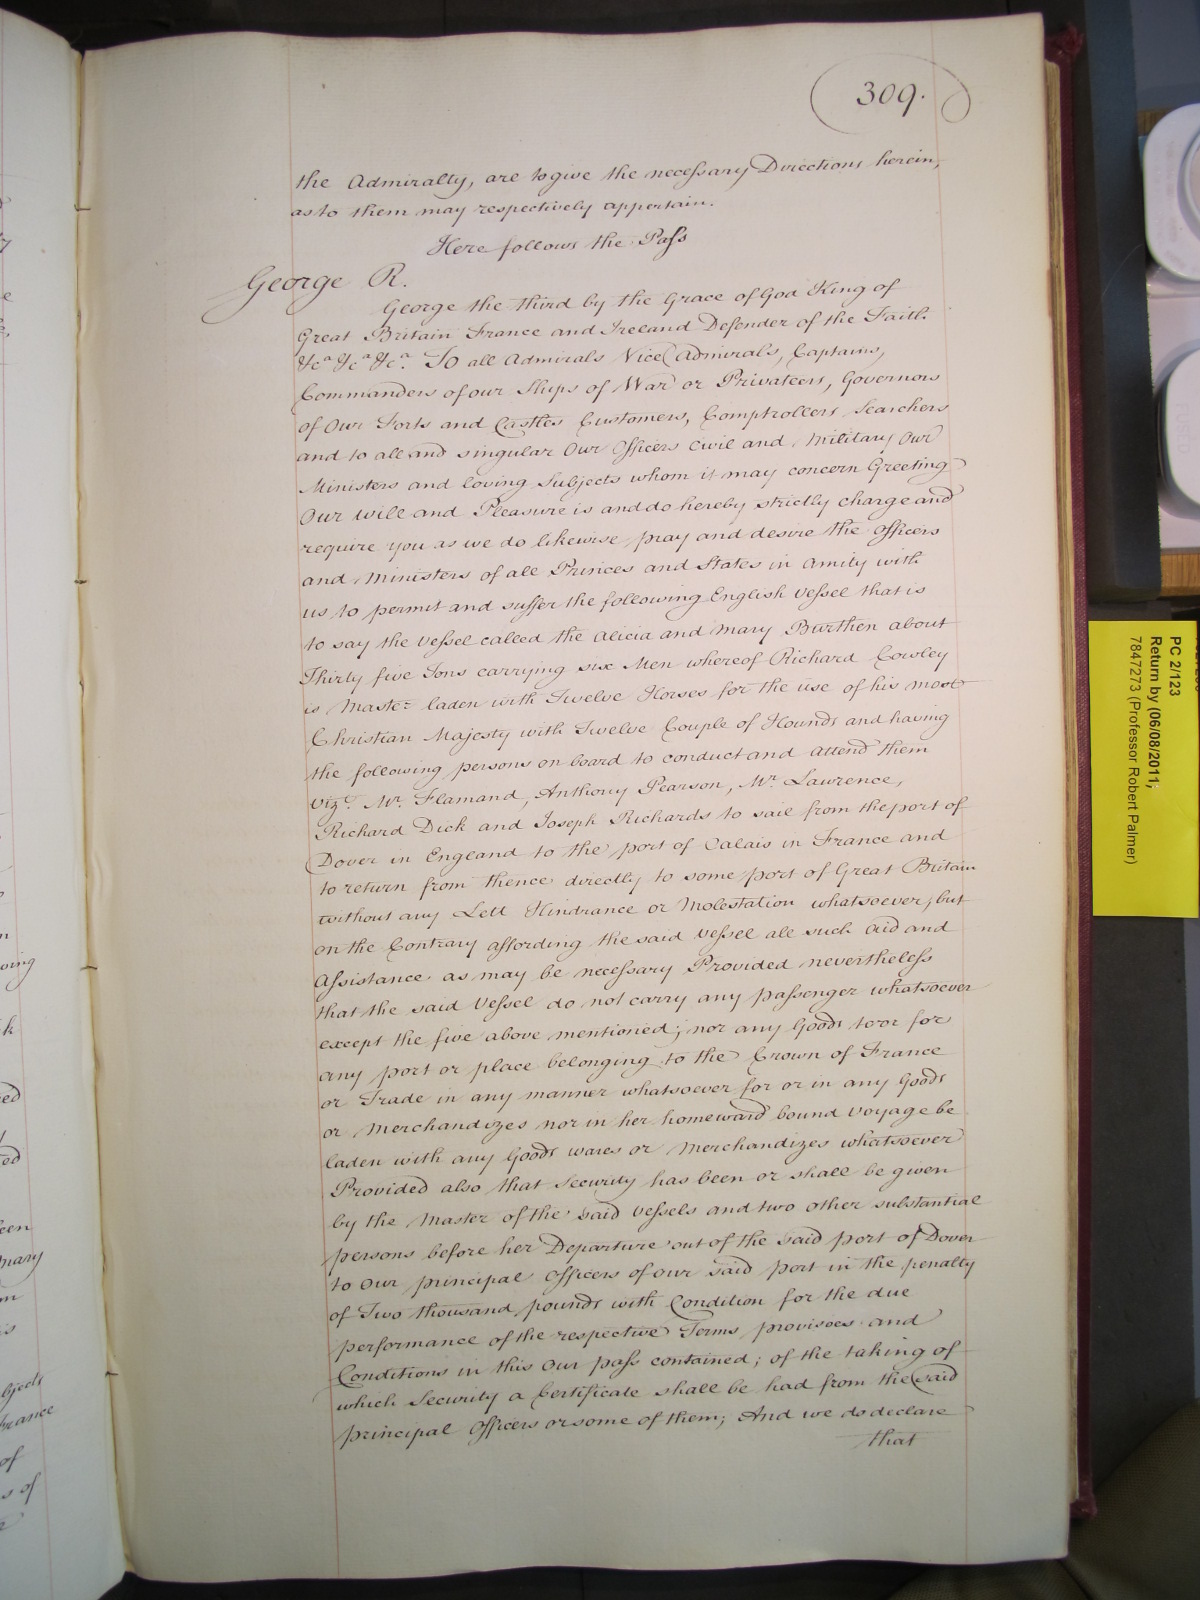 309.
the Admiralty, are to give the necessary Directions herein,
as to them may respectively appertain.
Here follows the Pass
George R.
George the third by the Grace of God King of
Great Britain France and Ireland Defender of the Faith
&cª &cª &cª. To all Admirals Vice Admirals, Captains,
Commanders of our Ships of War or Privateers, Governors
of Our Forts and Castles Customers, Comptrollers Searchers
and to all and singular Our Officers Civil and Military Our
Ministers and loving Subjects whom it may concern Greeting
Our Will and Pleasure is and do hereby strictly charge and
require you as we do likewise pray and desire the Officers
and Ministers of all Princes and States in Amity with
us to permit and suffer the following English Vessel that is
to say the Vessel called the Alicia and Mary Burthen about
Thirty five Tons carrying six Men whereof Richard Cowley
is Master laden with Twelve Horses for the use of his most
Christian Majesty with Twelve Couple of Hounds and having
the following persons on board to conduct and attend them
vizt. Mr. Flamand, Anthony Pearson, Mr. Lawrence,
Richard Dick and Joseph Richards to sail from the port of
Dover in England to the port of Calais in France and
to return from thence directly to some port of Great Britain
without any Lett Hindrance or Molestation whatsoever, but
on the Contrary affording the said Vessel all such Aid and
Assistance as may be necessary Provided nevertheless
that the said Vessel do not carry any passenger whatsoever
except the five above mentioned; nor any Goods to or for
any port or place belonging to the Crown of France
or Trade in any manner whatsoever for or in any Goods
or Merchandizes nor in her homeward bound Voyage be
laden with any Goods wares or Merchandizes whatsoever
Provided also that Security has been or shall be given
by the Master of the said Vessels and two other substantial
persons before her Departure out of the said port of Dover
to Our principal Officers of Our said port in the penalty
of Two thousand pounds with Condition for the due
performance of the respective Terms provisoes and
Conditions in this Our pass contained; of the taking of
which Security a Certificate shall be had from the said
principal Officers or some of them; And we do declare
that
PC 2/123
Return by (06/08/2011;
7847273 (Professor Robert Palmer)